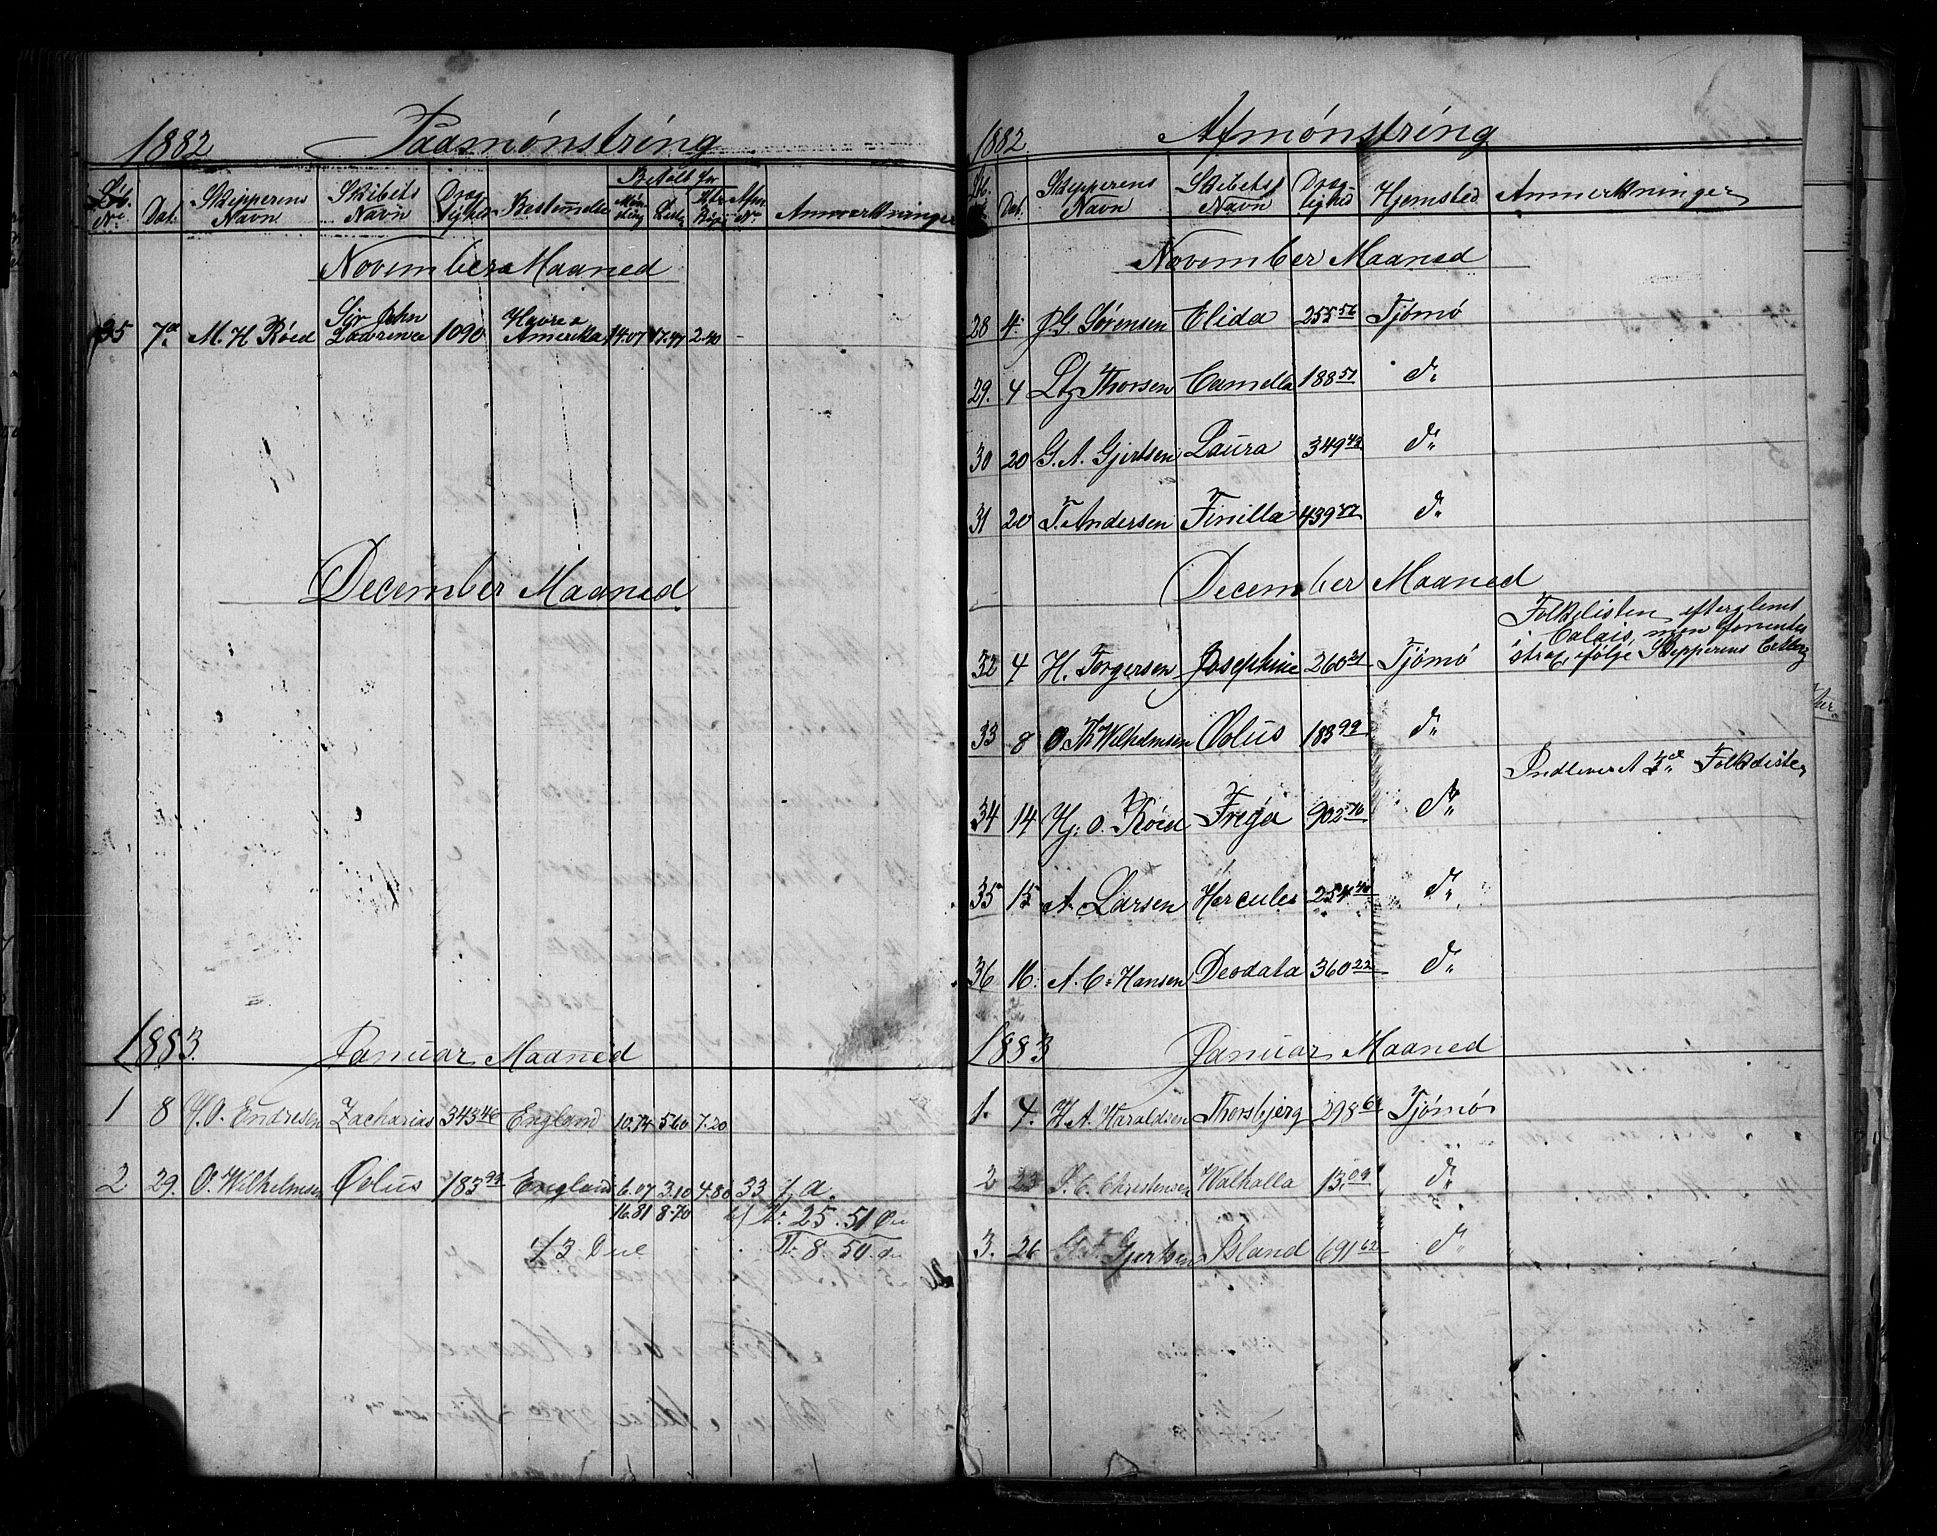 1882 Paamønstring
Lb. Nr. Dat. Skipperens Navn Skibets Navn Dræg-tighed Bestemelse Betalt for Mønstring Afm. Nr. Anmerkninger
November Maaned
35 7de M. H. Röed Sir John Lawrence 1090 Havre & Amerika 14.07 17.47 2.40 -
December Maaned
1883. Januar Maaned
1 8 O. Endresen Zacharias 343 46 England 10.74 5.60 7.20
2 29. O. Wilhelmsen Æolus 183 99 England 6.07 3.10 4.80 33
16.81 8.70 Kr. 25.51 Øre
1/3 Deel Kr. 8.50 Øre
1882 Afmønstring
Lb. Dat. Skipperens Navn Skibets Navn Dræg-tighed Hjemsted Anmerkninger
November Maaned
28 4. Sørensen Elida 255 56 Tjømø
29. 4 Thorsen Camella 188 51 do
30 20 G. A. Gjertsen Laura 349 43 do
31 20 T. Andersen Finilla 439 47 do
December Maaned
Folkelisten efterglemt
i Calais, men foventes
32 4 H. Torgersen Josephine 260 31 Tjømø strax, ifølge Skipperens
33 8 O. Th Wilhelmsen Æolus 183 99 do
Indleveret 3de Folkelister
34 14 Hj. O. Röed Freya 902 do
35 15 A. Larsen Hercules 254 40 do
36 16. A. C. Hansen Deodata 360 22 do
1883 Januar Maaned
1. 4. H. A. Haraldsen Thorsbjerg 298 64 Tjømø
2 23 C. Christensen Walhalla do
3. 26 Gjertsen Island 691 62 do